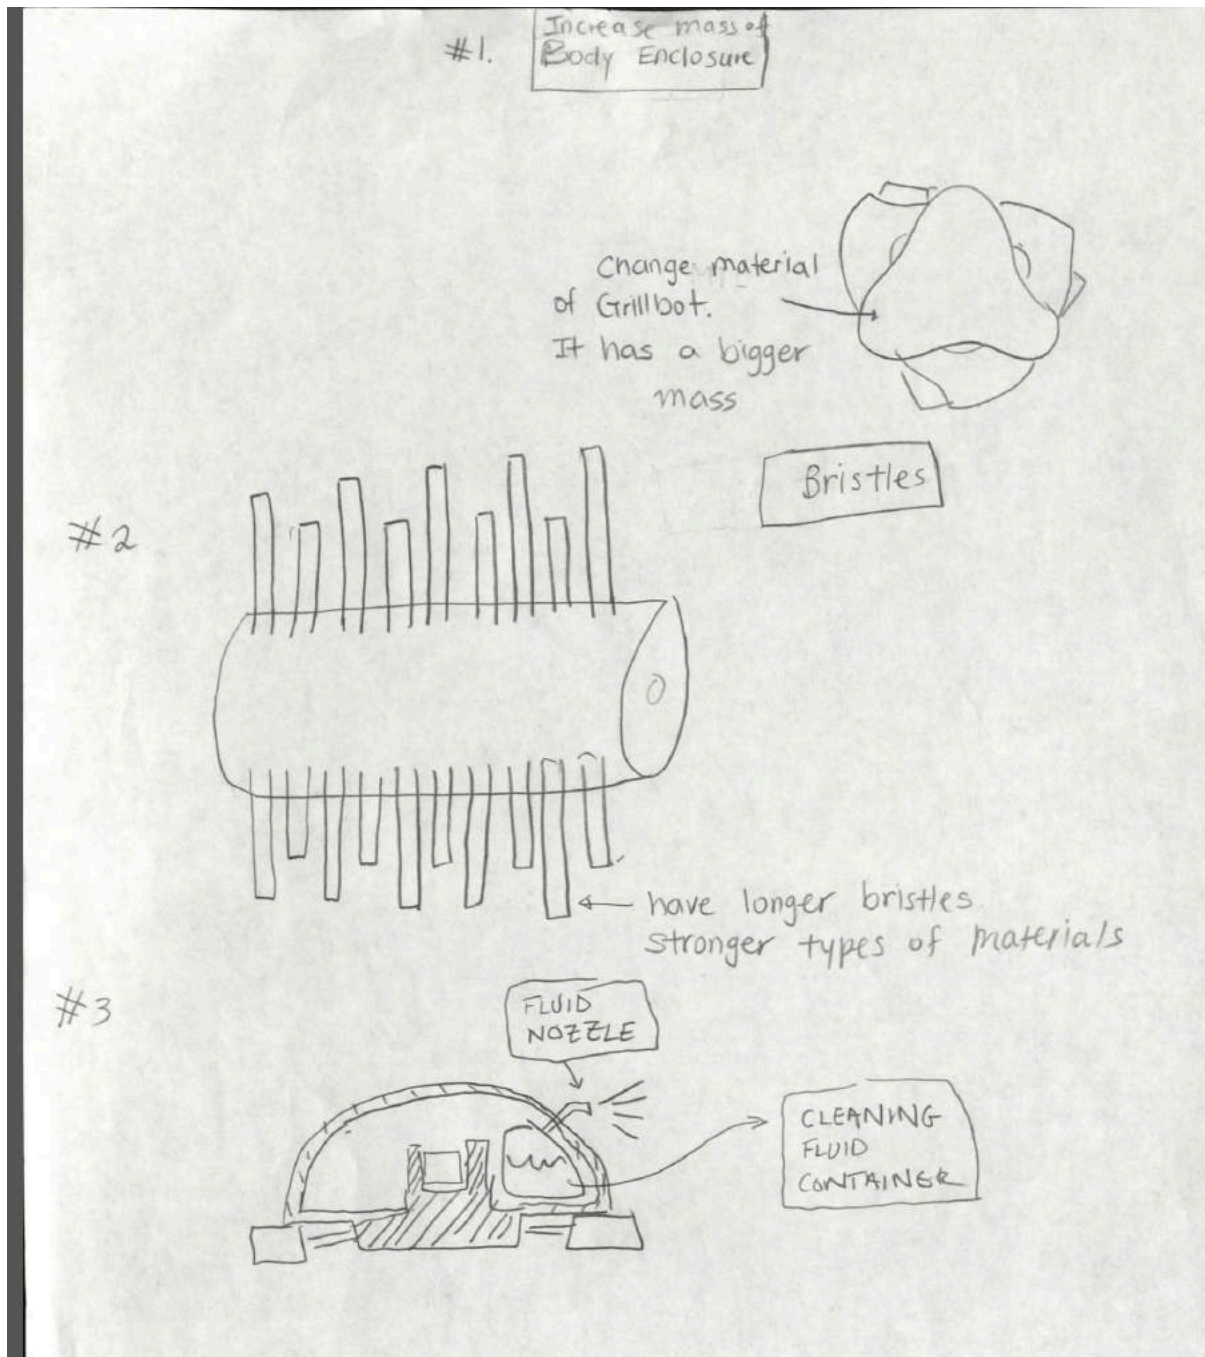 #1.
Increase mass of
Body Enclosure
Change material
of Grillbot.
It has a bigger
mass
Bristles
#2
have longer bristles
stronger types of materials
#3
FLUID
NOZZLE
CLEANING
FLUID
CONTAINER